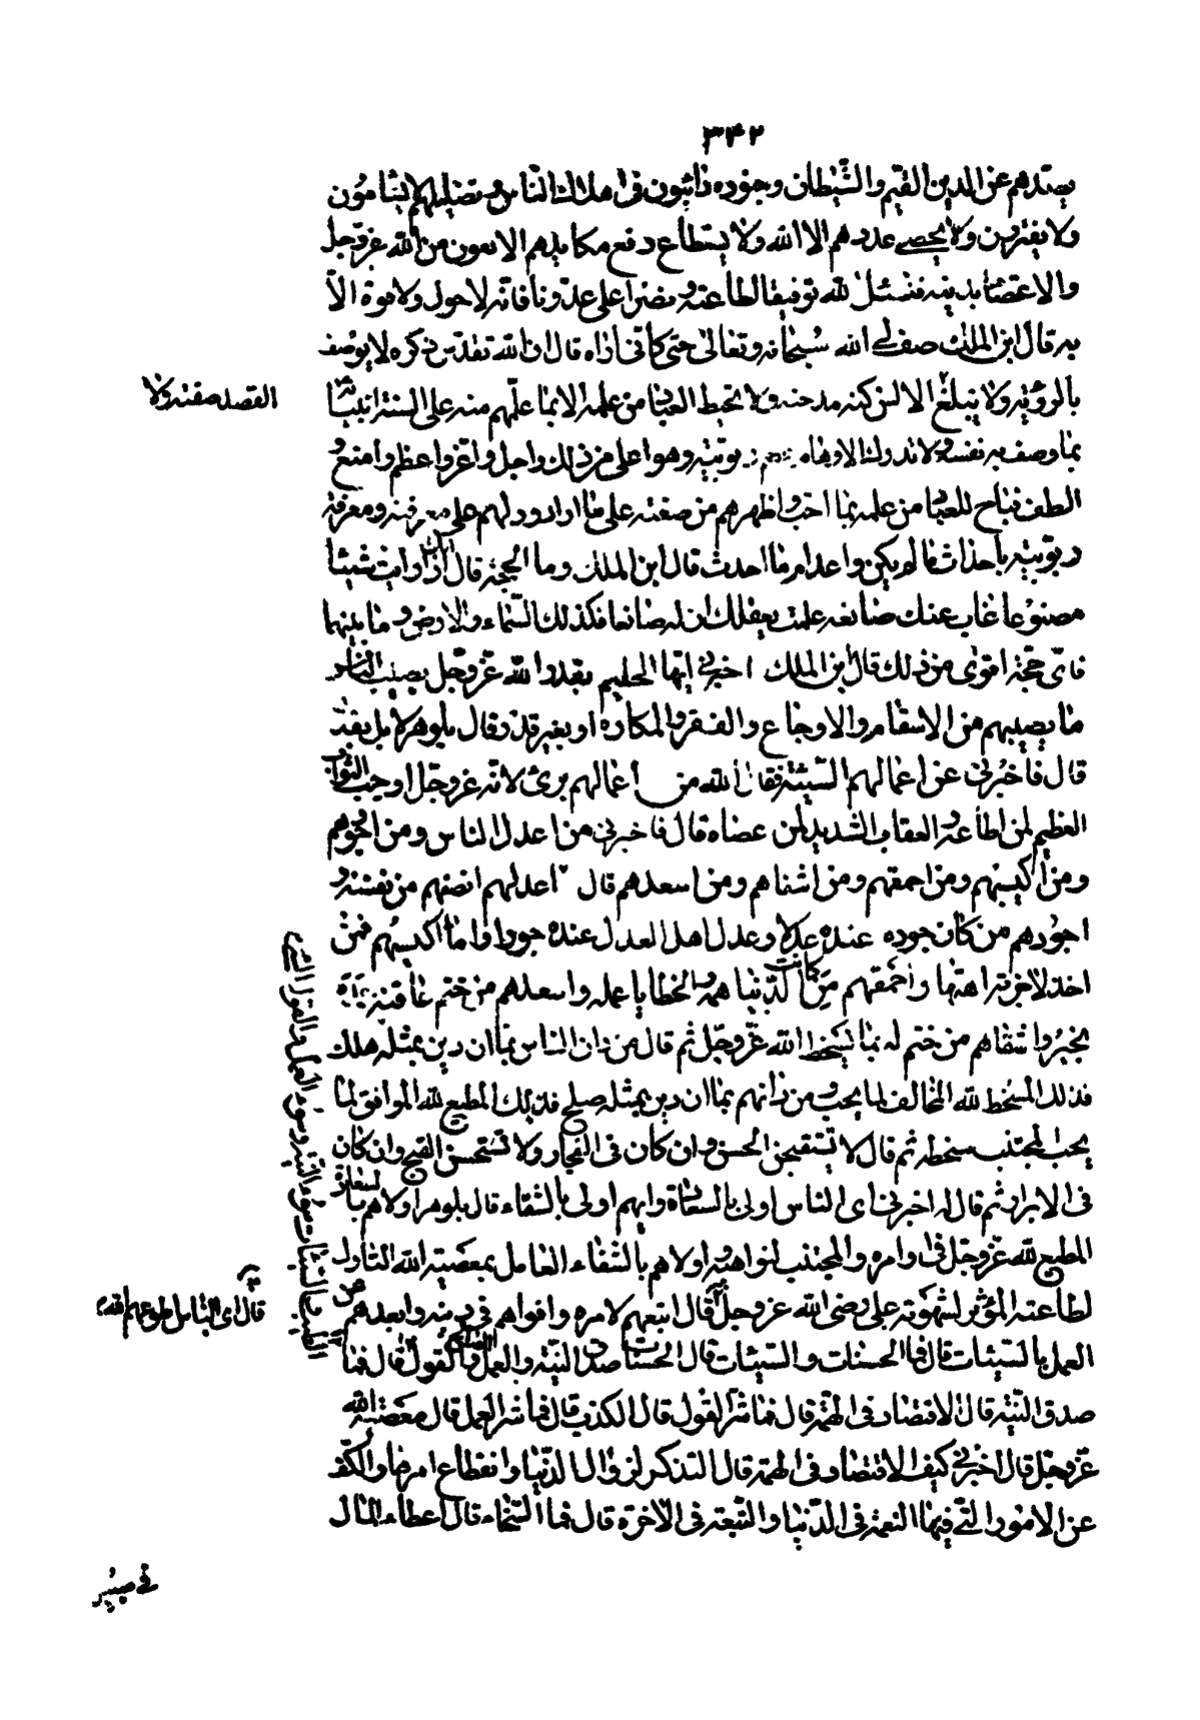 ٣٤٢
يصدهم عن الدين القيم والشيطان وجنوده دائبون في اهلاك الناس وتضليلهم لا يسأمون
ولا يفترون ولا يحصى عددهم الا الله ولا يستطاع دفع مكايدهم الا بعون من الله عز وجل
والاعتصام بدينه فنسئل الله توفيقا لطاعته ونصرا على عدونا فانه لا حول ولا قوة الا
به قال ابن الملك صف لى الله سبحانه وتعالى حتى كانى اراه قال ان الله تقدس ذكره لا يوصف
بالرؤية ولا يبلغ الالسن كنه مدحته ولا يحيط العباد من علمه الا بما علمهم منه على السنة انبيائه
بما وصف به نفسه ولا تدرك الاوهام ربوبيته وهو اعلى من ذلك واجل واعز واعظم وامنع و
الطف فباح للعباد من علمه بما احب واظهرهم من صفته على ما اراد ودلهم على معرفته ومعرفة
ربوبيته باحداث ما لم يكن واعدام ما احدث قال ابن الملك وما الحجة قال اذا رايت شيئا
مصنوعا غاب عنك صانعه علمت بعقلك ان له صانعا فكذلك السماء والارض وما بينهما
فاى حجة اقوى من ذلك قال ابن الملك اخبرنى ايها الحكيم بقدر الله عز وجل يصيب الناس
ما يصيبهم من الاسقام والاوجاع والفقر والمكاره او بغير قدر قال بلوهر لا بل بقدر
قال فاخبرنى عن اعمالهم السيئة فقال ان الله من اعمالهم برئ لانه عز وجل اوجب الثواب
العظيم لمن اطاعه والعقاب الشديد لمن عصاه قال فاخبرنى من اعدل الناس ومن اجورهم
ومن اكيسهم ومن احمقهم ومن اشقاهم ومن اسعدهم قال اعدلهم انصفهم من نفسه و
اجورهم من كان جوره عنده عدلا وعدل اهل العدل عنده جورا واما اكيسهم فمن
اخذ لاخرته اهبتها واحمقهم من كانت الدنيا همه والخطايا عمله واسعدهم من ختم عاقبة عمله
بخير واشقاهم من ختم له بما يسخط الله عز وجل ثم قال من دان الناس بما ان دين بمثله هلك
فذلك المسخط لله المخالف لما يحب ومن دانهم بما ان دين بمثله صلح فذلك المطيع لله الموافق لما
يحب المجتنب سخطه ثم قال لا تستقبحن الحسن وان كان فى الفجار ولا تستحسن القبيح وان كان
فى الابرار ثم قال له اخبرنى اى الناس اولى بالسعادة وايهم اولى بالشقاء قال بلوهر اولاهم بالسعادة
المطيع لله عز وجل فى اوامره والمجتنب لنواهيه واولاهم بالشقاء العامل بمعصية الله التارك
لطاعته المؤثر لشهوته على رضى الله عز وجل قال اتبعهم لامره واقواهم فى دينه وابعدهم من
العمل بالسيئات قال فما الحسنات والسيئات قال الحسنات صدق النية والعمل والقول الصالح قال فما
صدق النية قال الاقتصاد فى الهمة قال فما شر القول قال الكذب قال فما شر العمل قال معصية الله
عز وجل قال اخبرنى كيف الاقتصاد فى الهمة قال التذكر لزوال الدنيا وانقطاع امرها والكف
عن الامور التى فيها النعمة فى الدنيا والتبعة فى الآخرة قال فما السخاء قال اعطاء المال
القصد صفته ولا
الطيب وما السيئات سوء النية وسوء العمل والقول السئ
قال اى الناس اطوعهم لله
فى سبيل